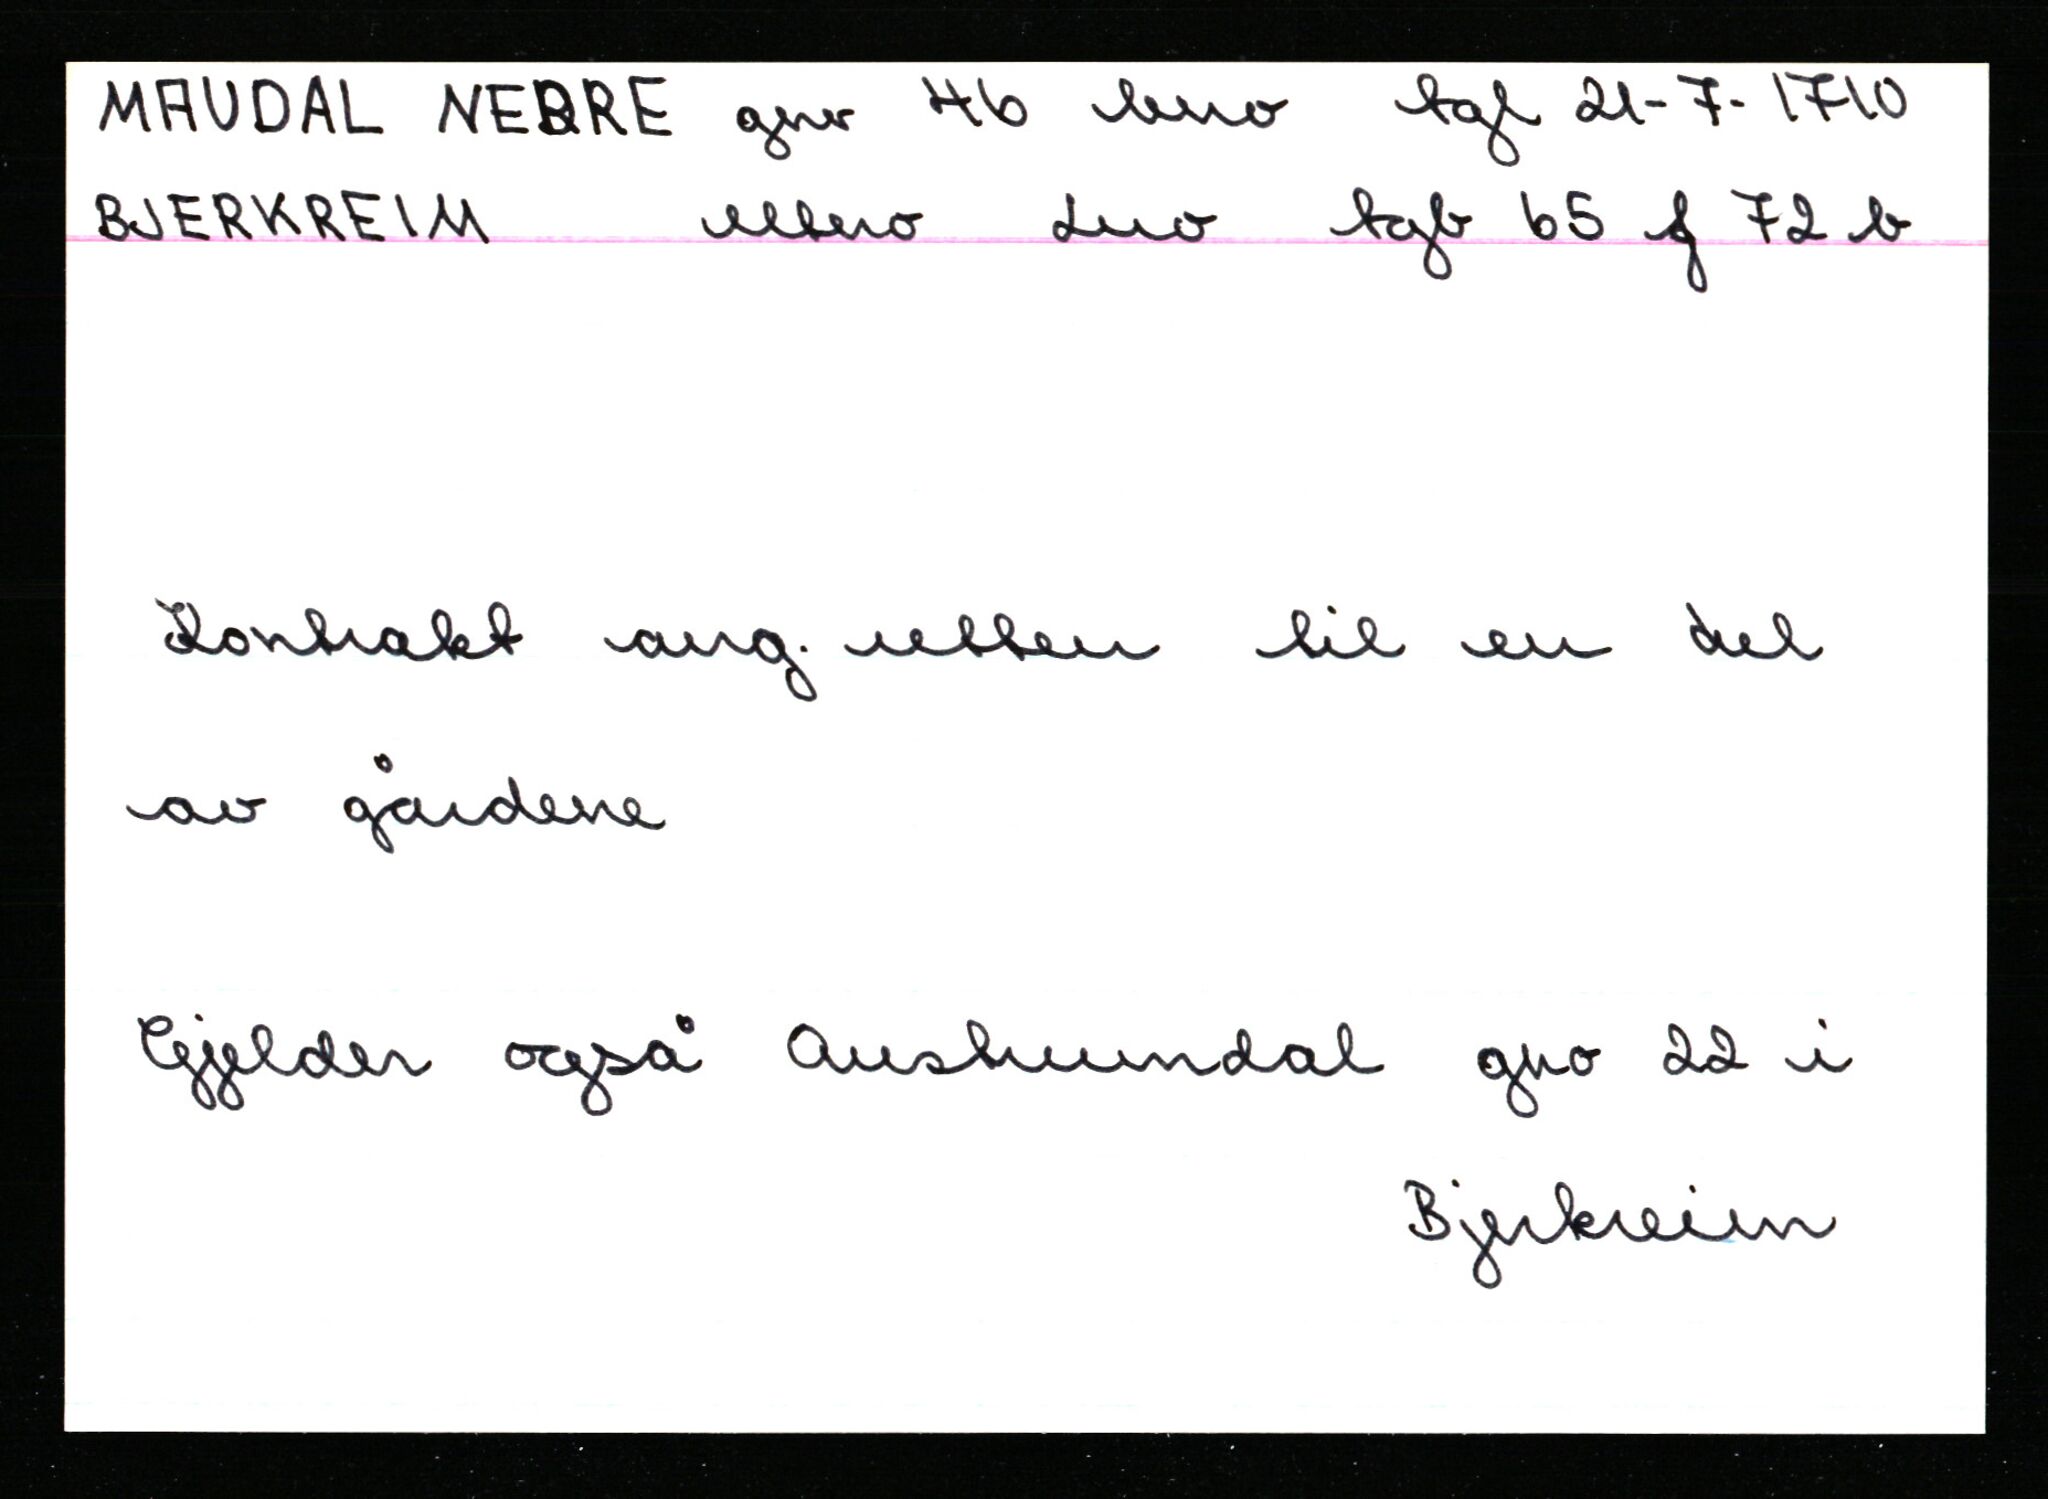 MAUDAL NEDRE gno 46 bno tgl 21-7-1710
BJERKREIM ellero lno tgb 65 f 72 b
Kontrakt ang. retten til en del
av gårdene
Gjelder også Austrumdal gno 22 i
Bjerkreim